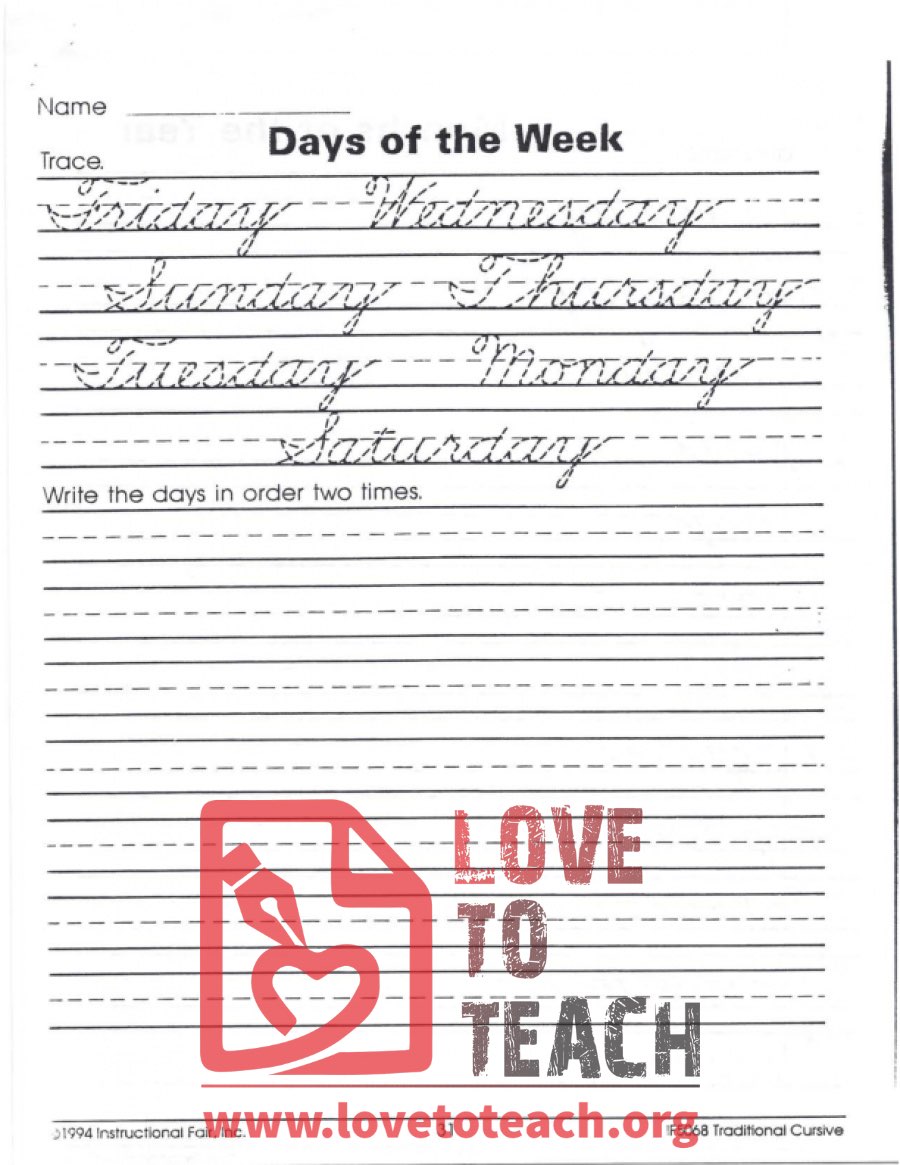 Name
Days of the Week
Trace.
Friday Wednesday
Sunday Thursday
Tuesday Monday
Saturday
Write the days in order two times.
LOVE
TO
TEACH
www.lovetoteach.org
©1994 Instructional Fair, Inc. 31 IF5068 Traditional Cursive